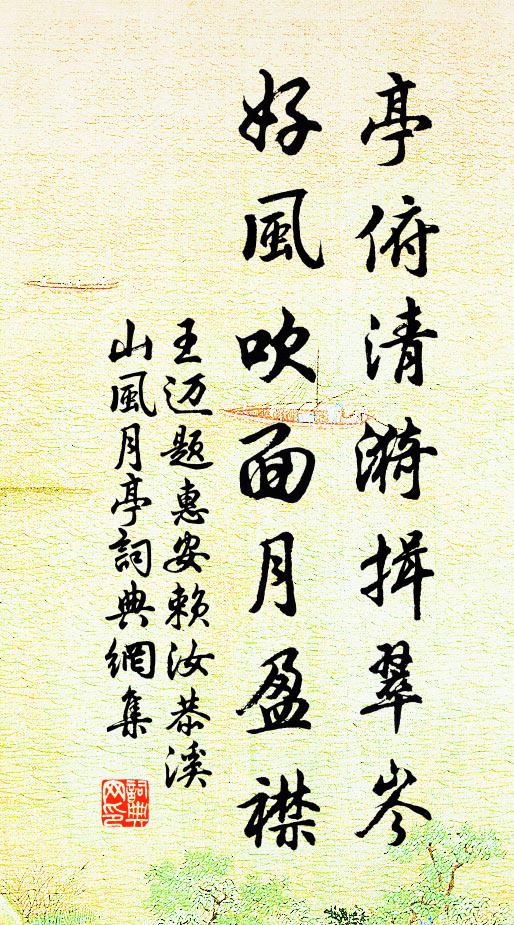 亭俯清漪揖翠岑
好風吹面月盈襟
王迈題惠安赖汝恭溪
山風月亭詞典網集
詞典網印